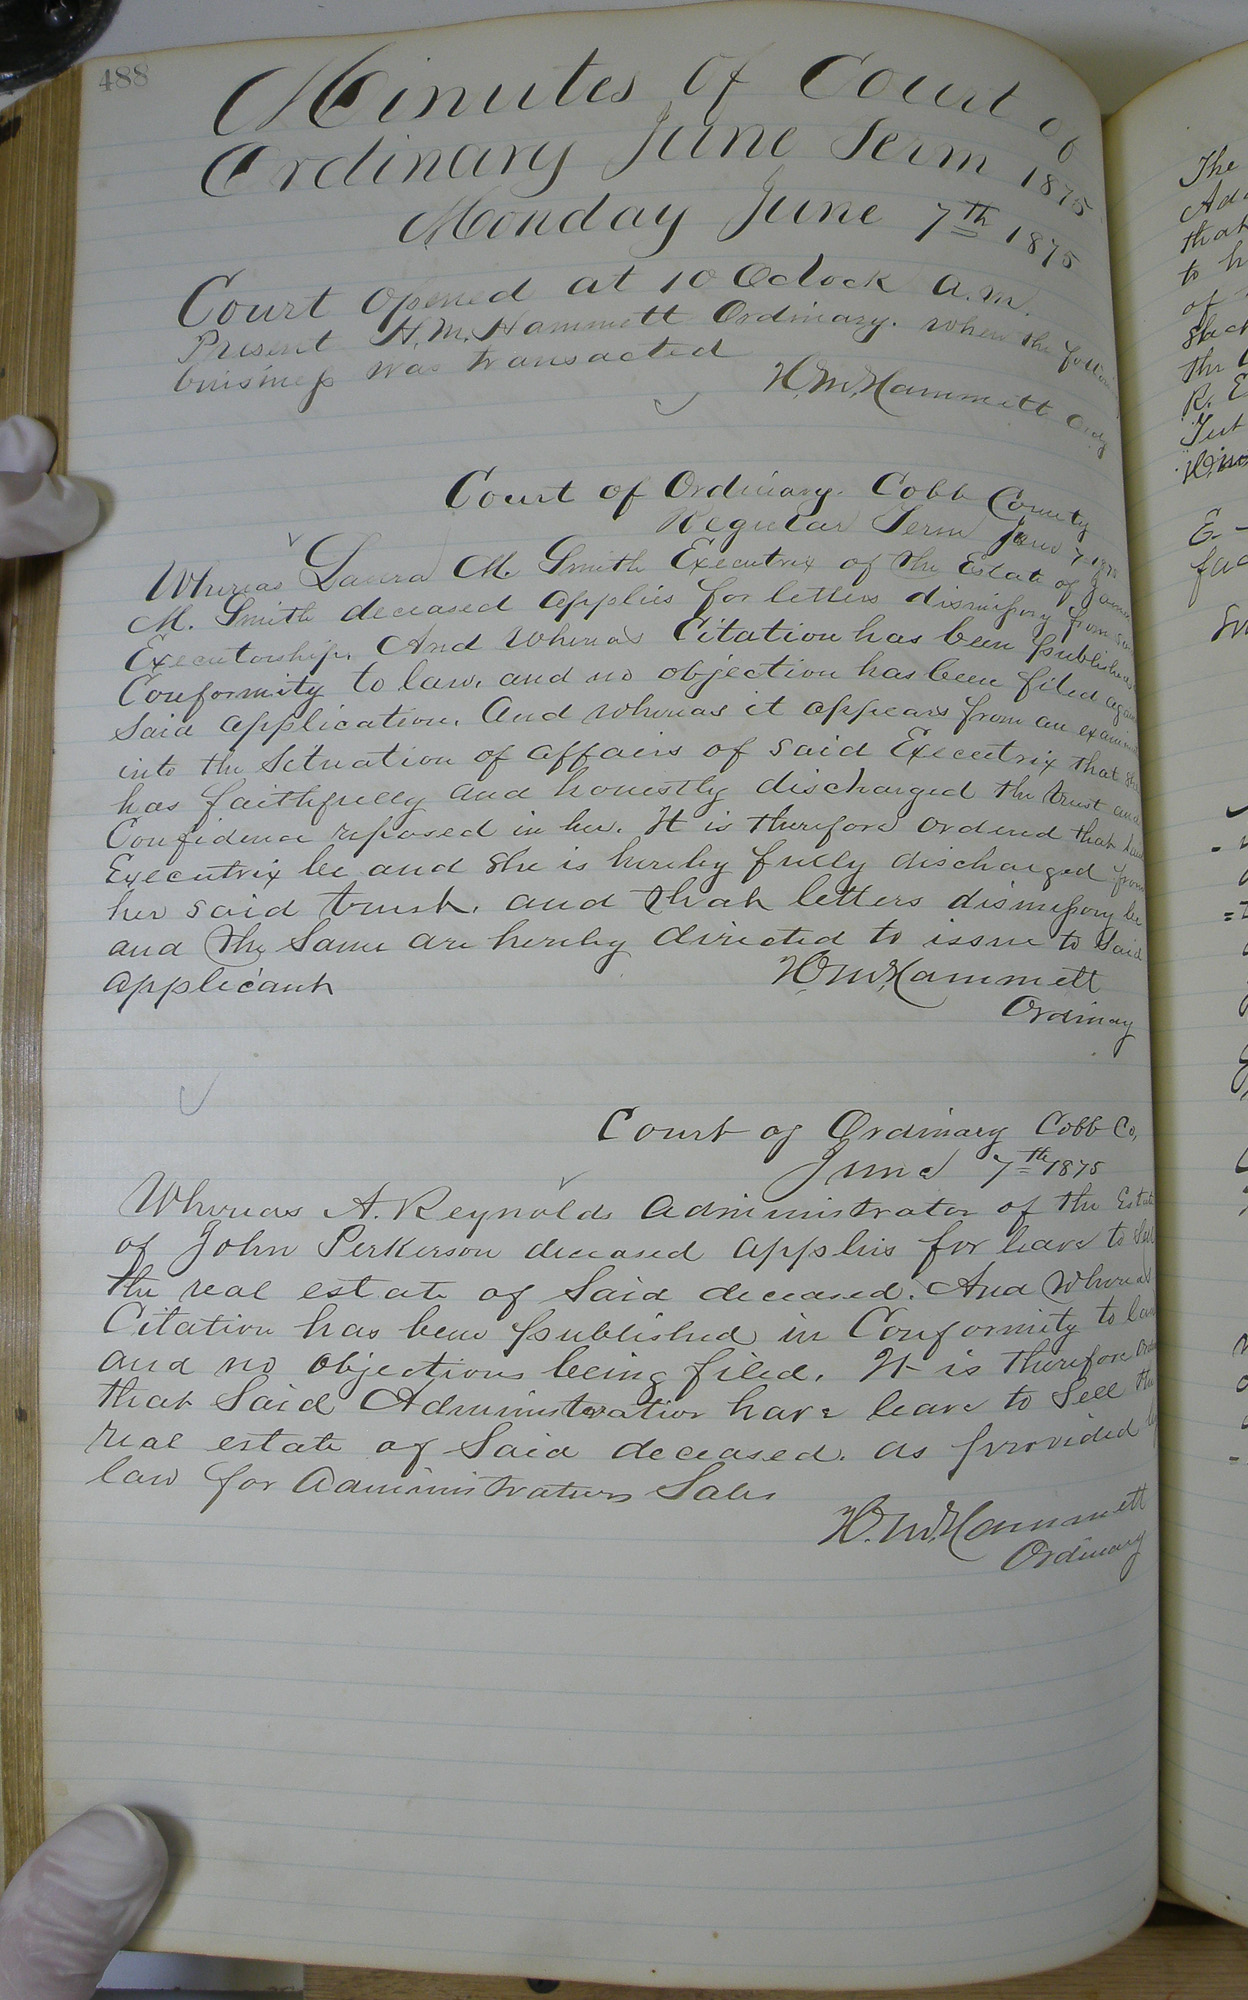 488
Minutes of Court of
Ordinary June Term 1875
Monday June 7th 1875
Court opened at 10 Oclock A.M.
Present H.M. Hammett Ordinary. when the
buisiness was transacted
H.M. Hammett Ordy
Court of Ordinary. Cobb County
Regular Term June 7 1875
Whereas Laura M. Smith Executrix of the Estate of James
M. Smith deceased applies for letters dismissory from
Executorship. And Whereas Citation has been published
Conformity to law. and no objection has been filed
said application. And whereas it appears from an
into the Situation of affairs of said Executrix that she
has faithfully and honestly discharged the trust and
Confidence reposed in her. It is therefore Ordered that
Executrix be and she is hereby fully discharged from
her said trust. and that letters dismissory be
and the Same are hereby directed to issue to Said
applicant
H.M. Hammett
Ordinary
Court of Ordinary Cobb Co,
June 7th 1875
Whereas A. Reynolds administrator of the Estate
of John Perkerson deceased applies for leave to Sell
the real estate of Said deceased. And Whereas
Citation has been published in Conformity to law
and no objections being filed. It is therefore
that Said Administrator have leave to Sell the
real estate of Said deceased. as provided by
law for Administrators Sales
H.M. Hammett
Ordinary
The
that
to
of
the
R. E
E.